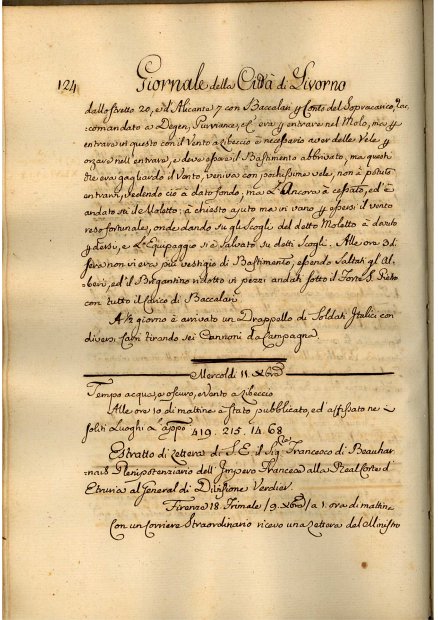 124 Giornale della Città di Livorno
dallo Stretto 20, e d'Alicante 7 con Baccalari p Conto del Sopracarico, rac-
comandato a Degen, Purviance, e C. era p entrare nel Molo, ma p
entrare in questo con il Vento a Libeccio è necessario aver delle Vele p
orzare nell'entrare, e deve essere il Bastimento abbrivato, ma questi
che era gagliardo il Vento, veniva con pochissime vele, non à potuto
entrarvi, vedendo ciò à dato fondo; ma l'Ancora à cessato, ed è
andato sù il Moletto; à chiesto ajuto ma in vano p essersi il vento
reso fortunale, onde dando su gli Scogli del detto Moletto è darito
p dersi, e l'Equipaggio si è salvato su detti Scogli. Alle ore 3 di
sera non vi era più vestigio di Bastimento, essendo saltati gl'Al-
beri, ed il Brigantino ridotto in pezzi andati sotto il Forte S. Pietro
con tutto il Carico di Baccalari
A ½ giorno è arrivato un Drappello di Soldati Italici con
diversi Carri tirando sei Cannoni da Campagna.
Mercoldì 11. Xbre
Tempo acqua, e oscuro, e Vento a Libeccio
Alle ore 10 di mattina è stato pubblicato, ed affissato ne
soliti Luoghi 419. 215. 14. 68
Estratto di Lettera di S. E. il Sig. Francesco di Beauhar-
nais Plenipotenziario dell'Impero Francese alla Real Corte d'
Etruria al General di Divisione Verdier.
Firenze 18 Frimale / 9. Xbre / a 1. ora di mattina
Con un Corriere Straordinario ricevo una Lettera del Ministro